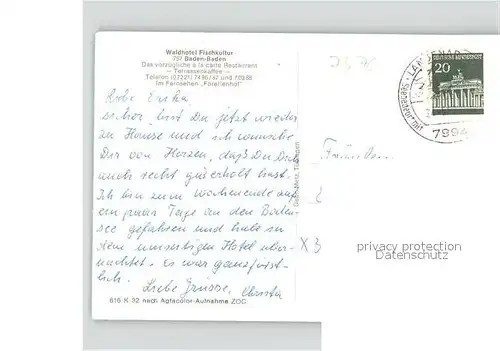 Waldhotel Fischkultur
757 Baden-Baden
Das vorzügliche à la carte Restaurant
— Terrassenkaffee —
Telefon (07221) 7486/97 und
Im Fernsehen „Forellenhof"
Liebe Erika
sicher bist Du jetzt wieder
zu Hause und ich wünsche
Dir von Herzen, daß Du Dich
auch recht gut erholt hast.
Ich bin zum Wochenende auf
ein paar Tage an den Boden-
see gefahren und habe in
dem umseitigen Hotel über-
nachtet. Es war ganz fürst-
lich.
Liebe Grüsse, Christa
616 K 32 nach Agfacolor-Aufnahme ZOC
Gebr. Metz, Tübingen
Fräulein
X 3
DEUTSCHE BUNDESPOST
20
LANGENARGEN
7994
privacy protection
Datenschutz